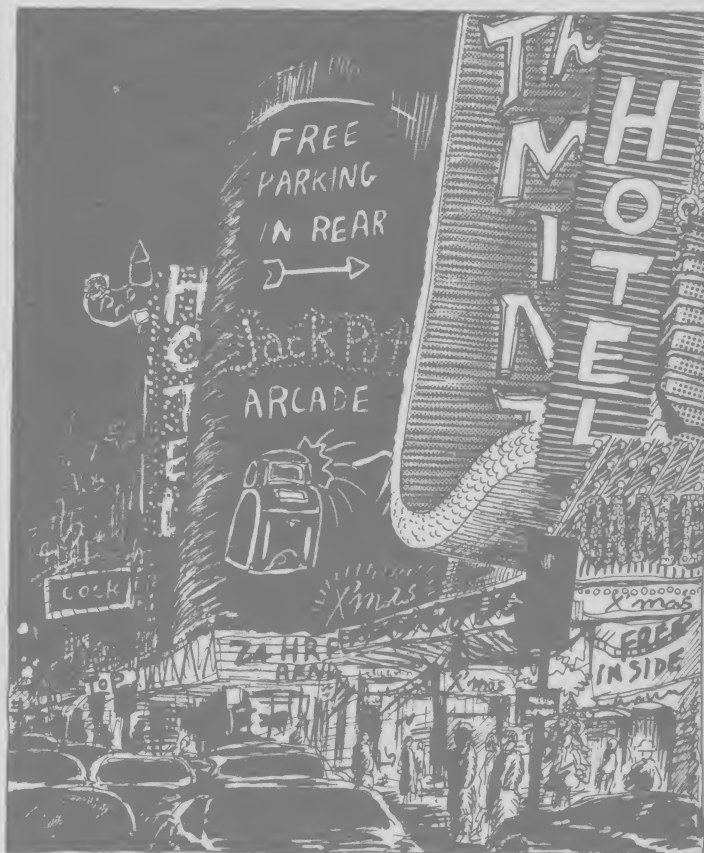 FREE
PARKING
IN REAR
HOTEL
JackPot
ARCADE
Th
MINT
HOTEL
COCK
X'mas
24 HR
X'mas
X'mas
FREE
INSIDE